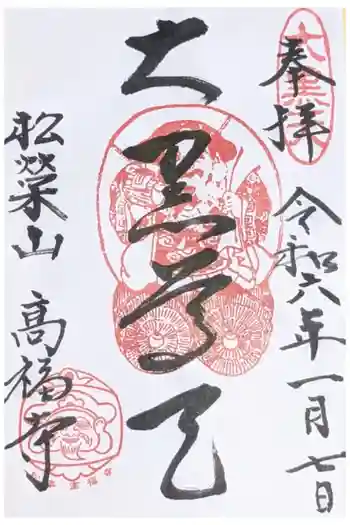 奉拝
令和六年一月七日
大黒尊天
松榮山 高福寺